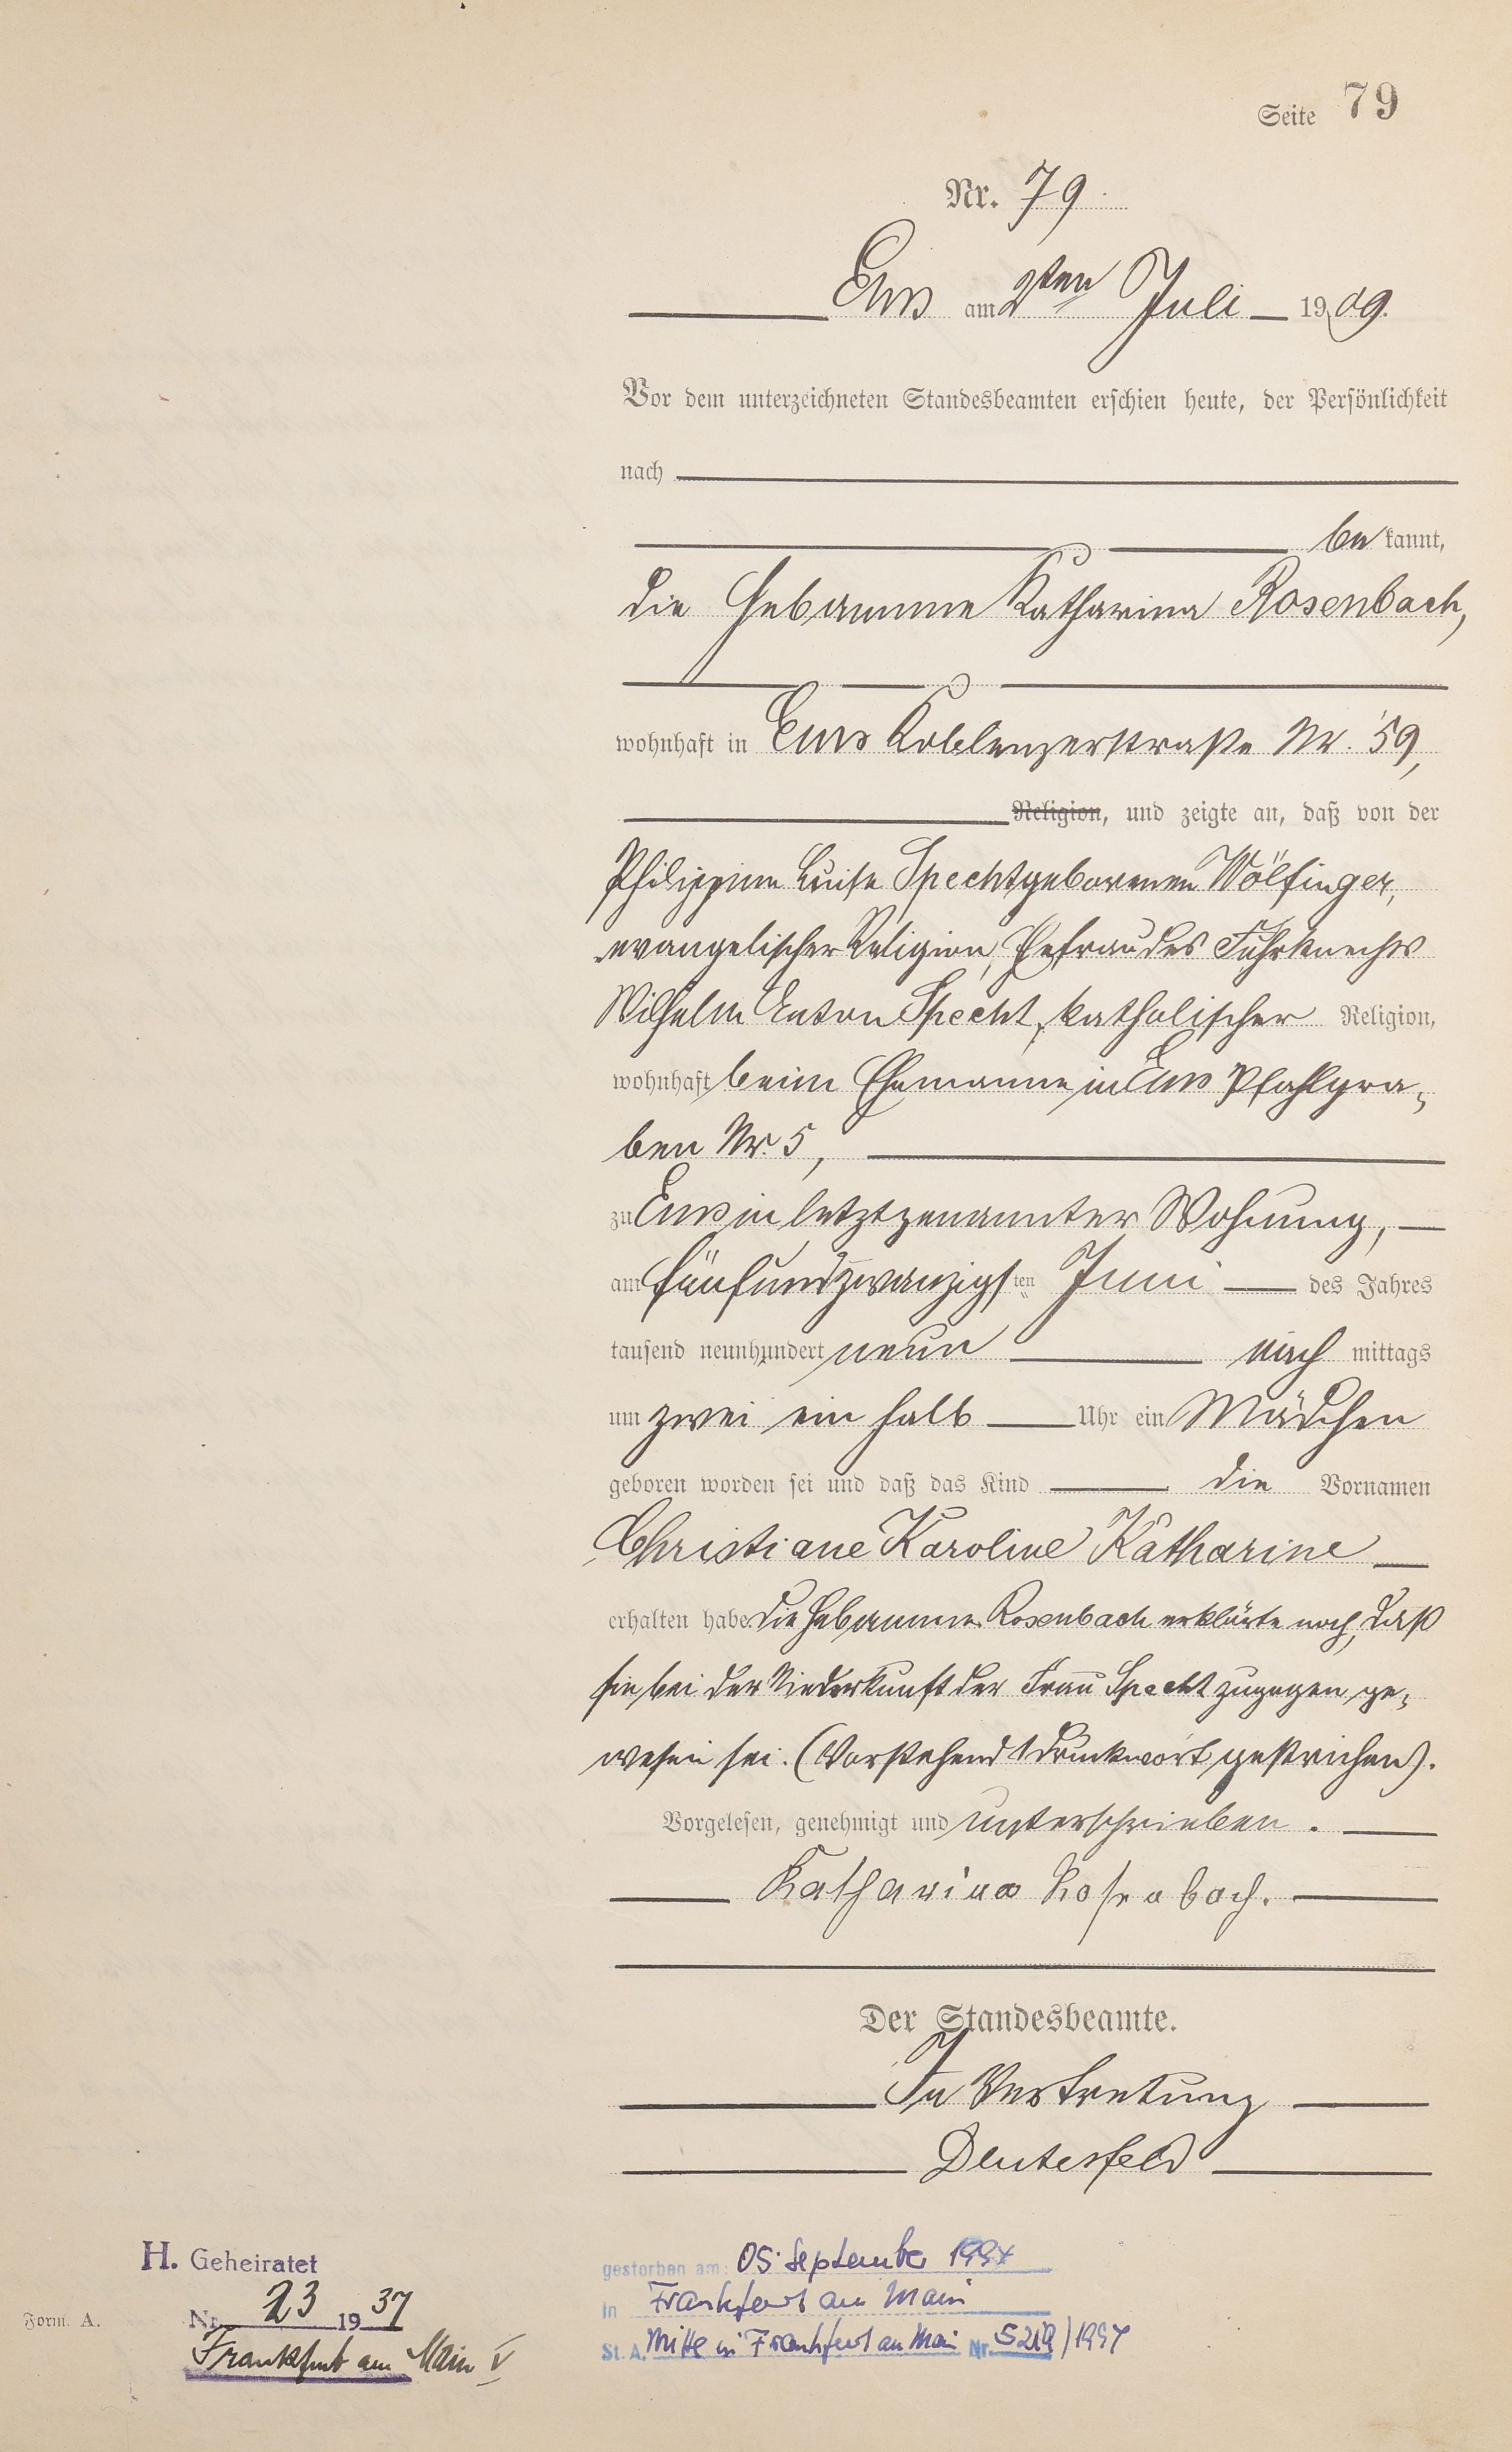 Seite 79
Nr. 79.
Ems am 2ten Juli 1909.
Vor dem unterzeichneten Standesbeamten erschien heute, der Persönlichkeit
nach
bekannt,
die Hebamme Katharina Rosenbach,
wohnhaft in Ems Koblenzerstraße Nr. 59,
Religion, und zeigte an, daß von der
Philippine Luise Specht geborenen Wölfinger,
evangelischer Religion, Ehefrau des Fuhrknechts
Wilhelm Anton Specht, katholischer Religion,
wohnhaft beim Ehemanne in Ems Pfahlgra-
ben Nr. 5,
zu Ems in letztgenannter Wohnung,
am fünfundzwanzigsten Juni des Jahres
tausend neunhundert neun nachmittags
um zwei ein halb Uhr ein Mädchen
geboren worden sei und daß das Kind die Vornamen
Christiane Karoline Katharine
erhalten habe. Die Hebamme Rosenbach erklärte noch, daß
sie bei der Niederkunft der Frau Specht zugegen ge-
wesen sei. (Vorstehend 1 Druckwort gestrichen).
Vorgelesen, genehmigt und unterschrieben.
Katharina Rosenbach.
Der Standesbeamte.
In Vertretung
Deutesfeld
H. Geheiratet
Nr. 23 1937
Frankfurt am Main V
Form. A.
gestorben am: 05. September 1994
in Frankfurt am Main
St. A. Mitte in Frankfurt am Main Nr. 5219/1994